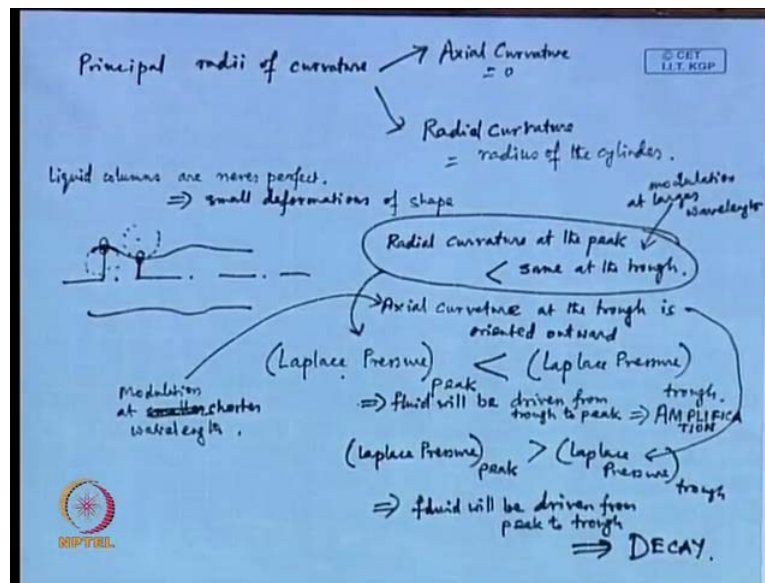 Principal radii of curvature → Axial Curvature
= 0
© CET
I.I.T. KGP
Radial Curvature
= radius of the cylinder.
Liquid columns are never perfect.
⇒ small deformations of shape
modulation
at larger
wavelength
Radial curvature at the peak
< same at the trough.
Axial curvature at the trough is
oriented outward
(Laplace Pressure)peak < (Laplace Pressure)trough.
Modulation
at shorter
wavelength.
⇒ fluid will be driven from
trough to peak ⇒ AMPLIFICA
TION
(Laplace Pressure)peak > (Laplace
Pressure)trough
⇒ fluid will be driven from
peak to trough
⇒ DECAY.
NPTEL